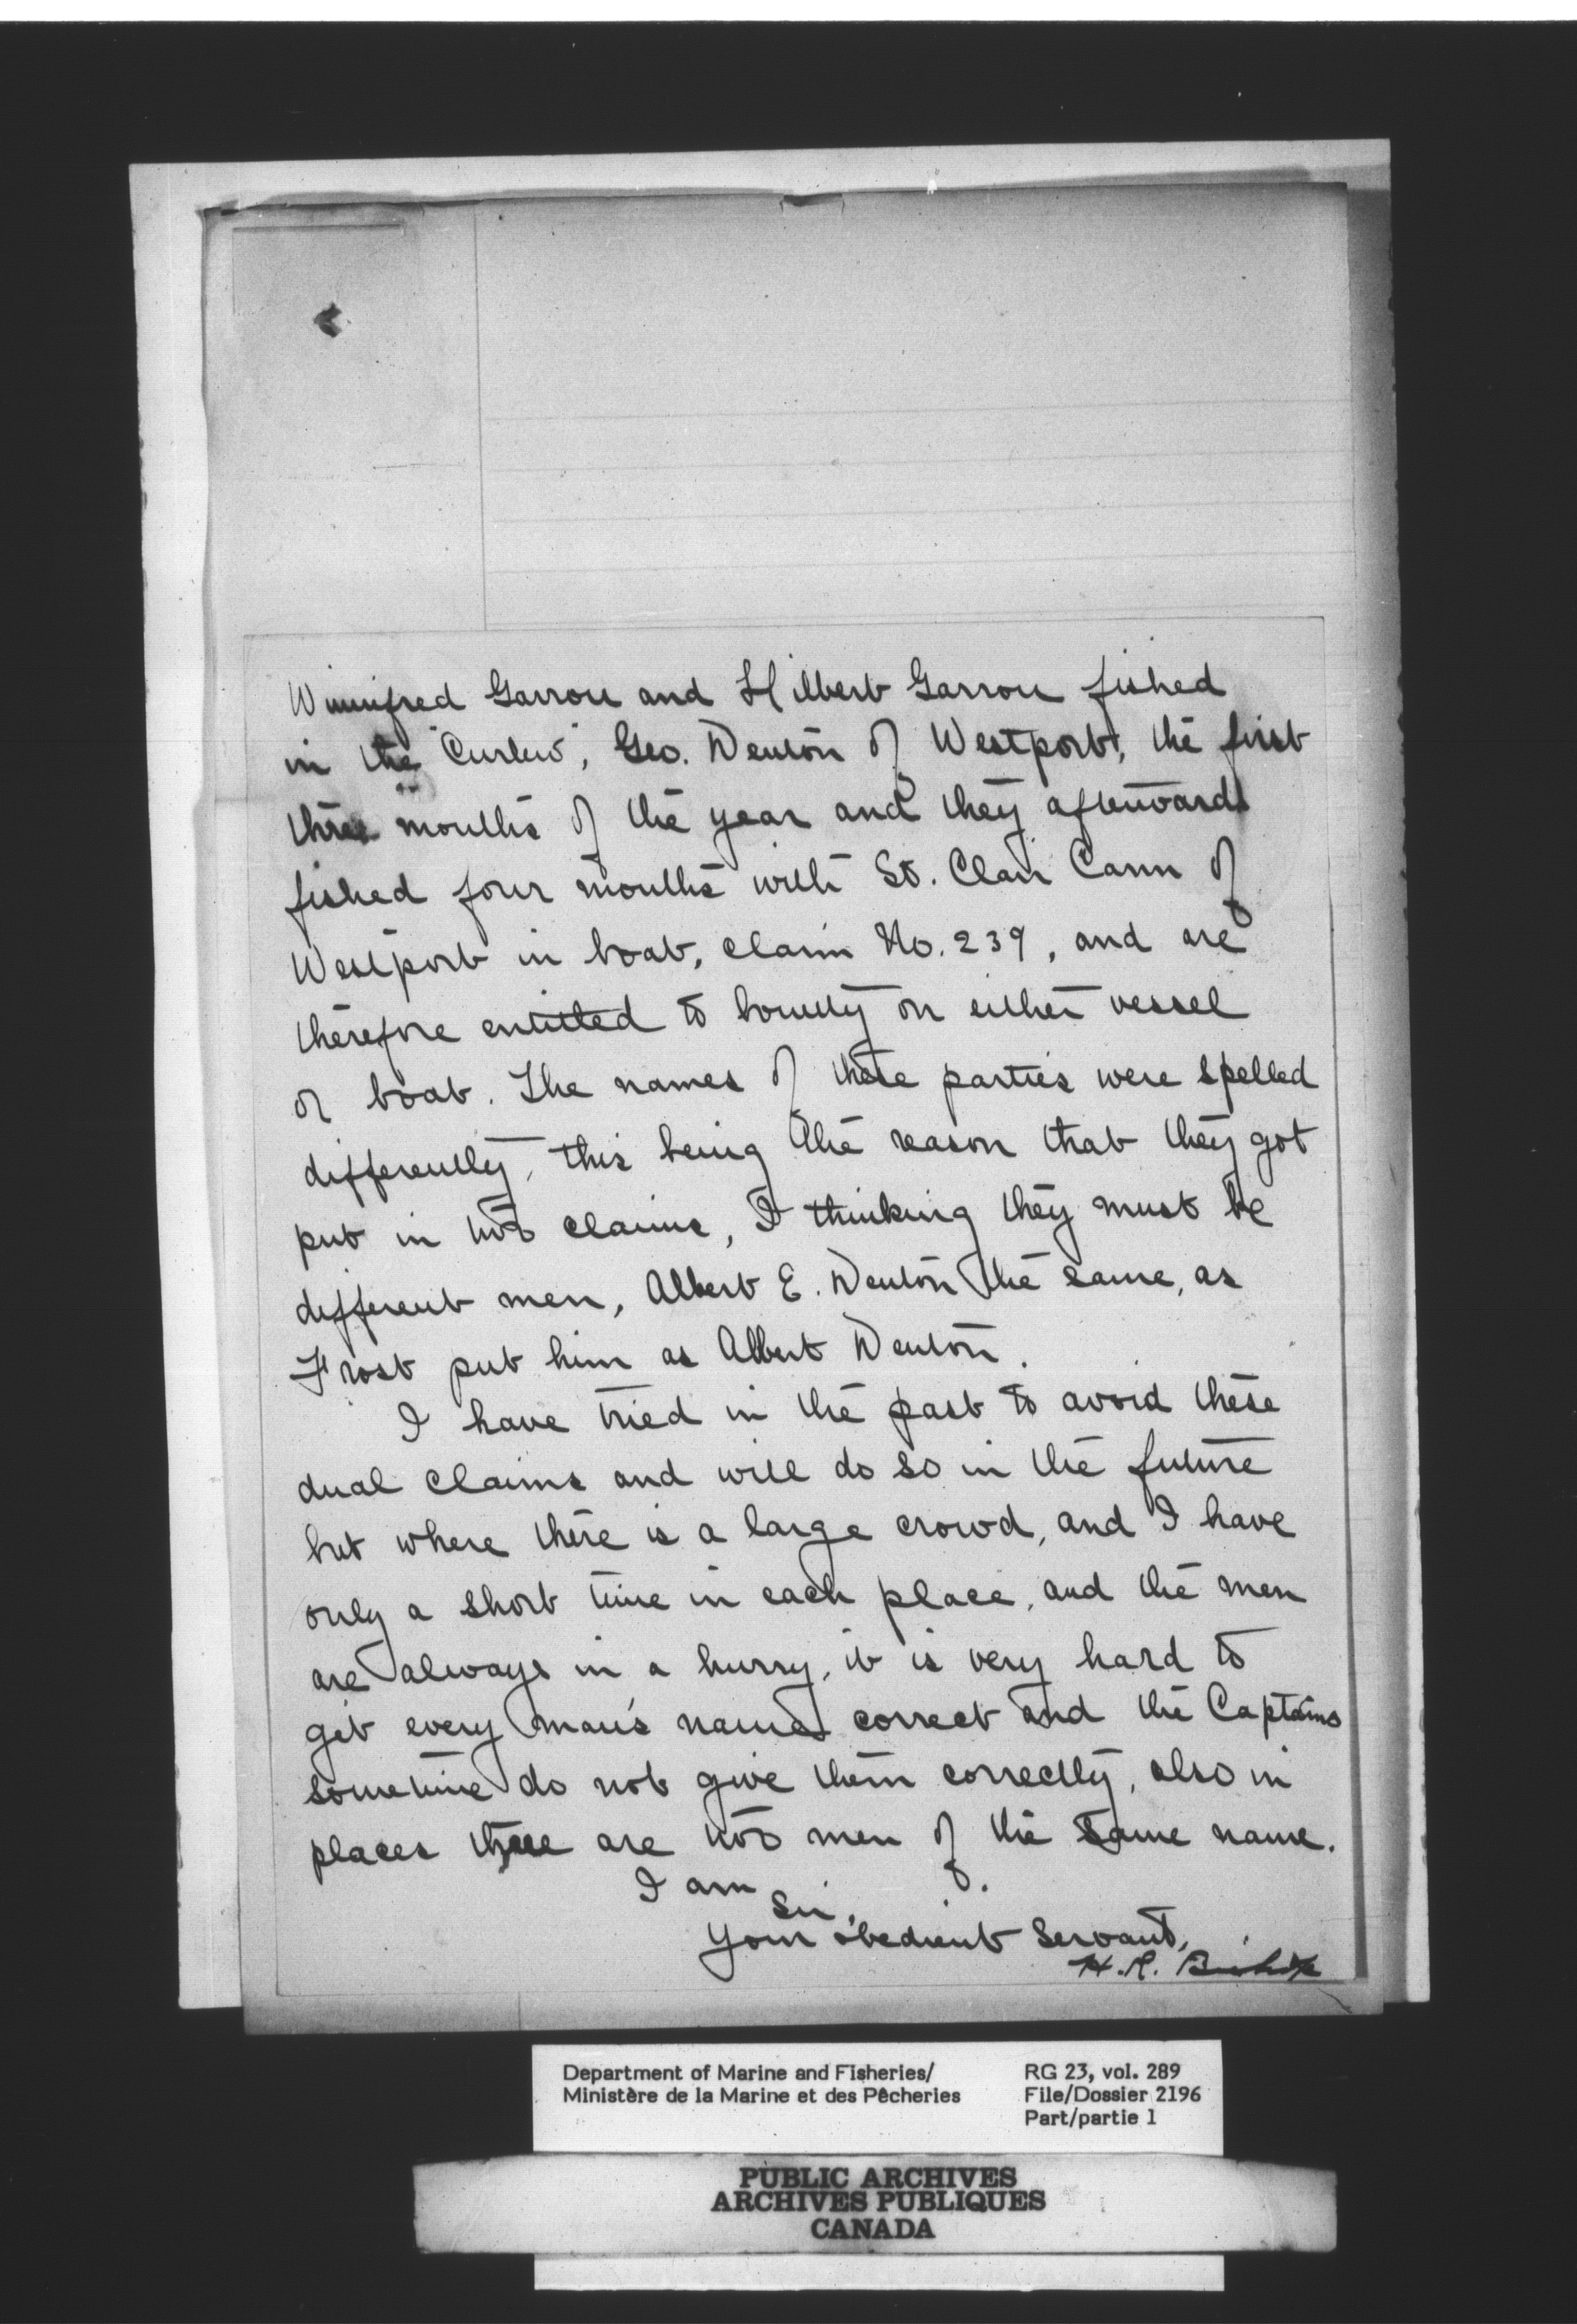 Winnifred Garron and Hilbert Garron fished
in the "Curlew", Geo. Denton of Westport, the first
three months of the year and they afterwards
fished four months with St. Clair Cann of
Westport in boat, claim No. 239, and are
therefore entitled to bounty on either vessel
or boat. The names of these parties were spelled
differently, this being the reason that they got
put in two claims, I thinking they must be
different men, Albert E. Denton the same, as
Frost put him as Albert Denton.
I have tried in the past to avoid these
dual claims and will do so in the future
but where there is a large crowd, and I have
only a short time in each place, and the men
are always in a hurry, it is very hard to
get every man's name correct and the Captains
sometime do not give them correctly, also in
places there are two men of the same name.
I am
Sir,
Your obedient Servant,
H.R.
Department of Marine and Fisheries/
Ministère de la Marine et des Pêcheries
RG 23, vol. 289
File/Dossier 2196
Part/partie 1
PUBLIC ARCHIVES
ARCHIVES PUBLIQUES
CANADA